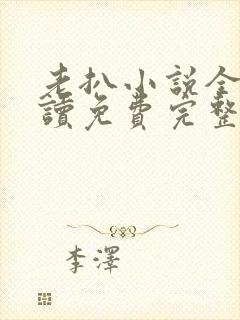 老扒小说全
讀免費完整
李澤